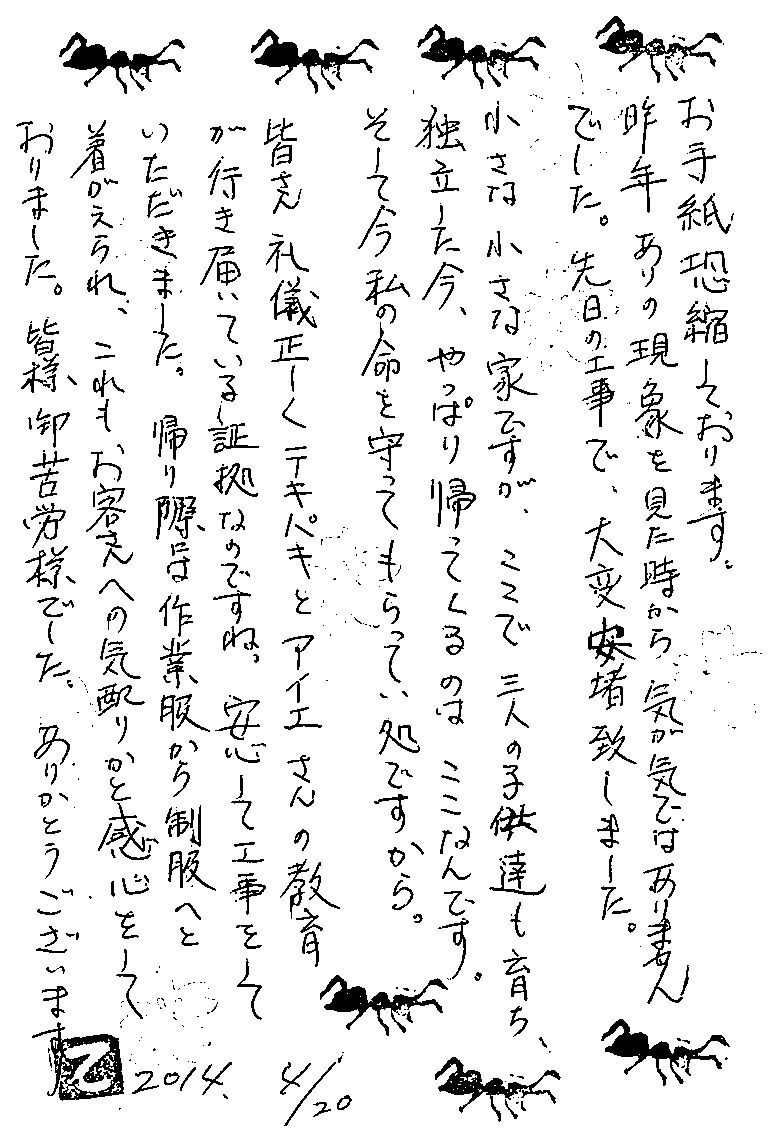 お手紙恐縮しております。
昨年ありの現象を見た時から気が気ではありません
でした。先日の工事で、大変安堵致しました。
小さな小さな家ですが、ここで三人の子供達も育ち、
独立した今、やっぱり帰ってくるのはここなんです。
そして今私の命を守ってもらってい処ですから。
皆さん礼儀正しくテキパキとアイエさんの教育
が行き届いている証拠なのですね。安心して工事をして
いただきました。帰り際には作業服から制服へと
着がえられ、これもお客さんへの気配りかと感心をして
おりました。皆様御苦労様でした。ありがとうございます
2014. 4/20